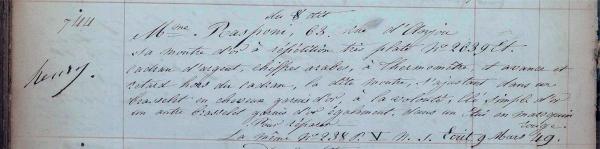 du 8 dit
744
Mme. Rasponi, 63. rue d'Anjou
sa montre d'or à répétition très plate No 2639 et.
cadran d'argent, chiffres arabes, à Thermomètre et avance et
retard hors du cadran, la dite montre, s'ajustant dans un
bracelet en cheveux garnis d'or, à la volonté, clé simple d'or
un autre bracelet garnis d'or également, dans un étui en maroquin
rouge.
Pour réparer
La même No 238 P. V N. 1. Ecrit 9 Mars 49.